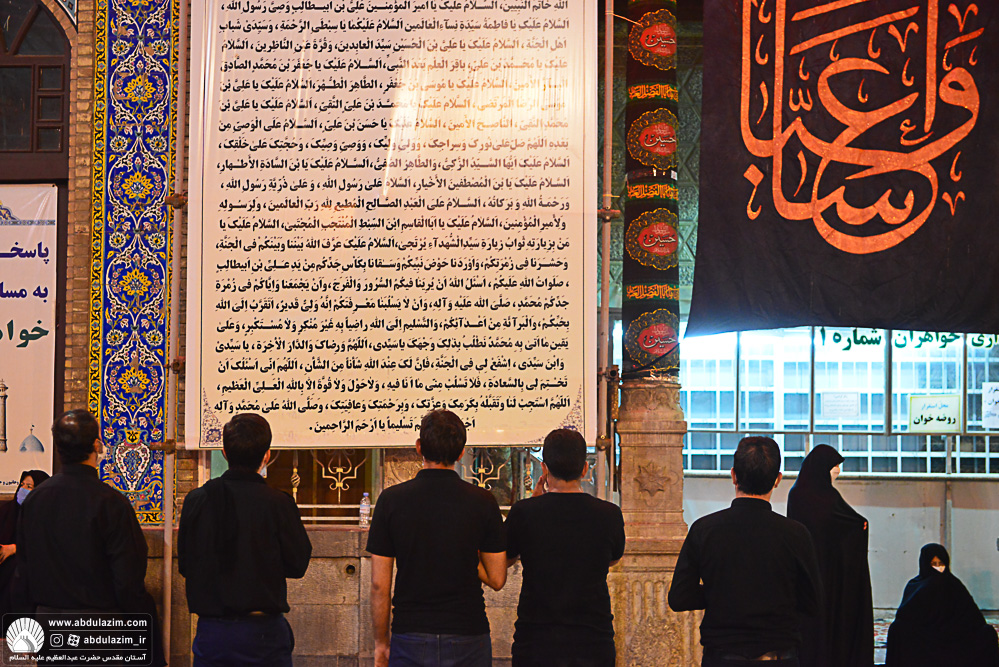 اللهِ خاتَمَ النَّبِيّينَ، اَلسَّلامُ عَلَيْكَ يا اَميرَ الْمُؤْمِنينَ عَلِيَّ بْنَ اَبيطالِبٍ وَصِيَّ رَسُولِ اللهِ،
اَلسَّلامُ عَلَيْكِ يا فاطِمَةُ سَيِّدَةَ نِسآءِ الْعالَمينَ اَلسَّلامُ عَلَيْكُما يا سِبْطَيِ الرَّحْمَةِ، وَسَيِّدَيْ شَبابِ
اَهْلِ الْجَنَّةِ، اَلسَّلامُ عَلَيْكَ يا عَلِيَّ بْنَ الْحُسَيْنِ سَيِّدَ الْعابِدينَ، وَقُرَّةَ عَيْنِ النّاظِرينَ، اَلسَّلامُ
عَلَيْكَ يا مُحَمَّدَ بْنَ عَلِيٍّ، باقِرَ الْعِلْمِ بَعْدَ النَّبِيِّ، اَلسَّلامُ عَلَيْكَ يا جَعْفَرَ بْنَ مُحَمَّدٍ الصّادِقَ
الْبآرَّ الْاَمينَ، اَلسَّلامُ عَلَيْكَ يا مُوسَى بْنَ جَعْفَرٍ، الطّاهِرَ الطُّهْرَ، اَلسَّلامُ عَلَيْكَ يا عَلِيَّ بْنَ
مُوسَى الرِّضَا الْمُرْتَضى، اَلسَّلامُ عَلَيْكَ يا مُحَمَّدَ بْنَ عَلِيٍّ التَّقِيَّ، اَلسَّلامُ عَلَيْكَ يا عَلِيَّ بْنَ
مُحَمَّدٍ النَّقِيَّ، النّاصِحَ الْاَمينَ، اَلسَّلامُ عَلَيْكَ يا حَسَنَ بْنَ عَلِيٍّ، اَلسَّلامُ عَلَى الْوَصِيِّ مِنْ
بَعْدِهِ اَللّهُمَّ صَلِّ عَلى نُورِكَ وَسِراجِكَ، وَوَلِيِّ وَلِيِّكَ، وَوَصِيِّ وَصِيِّكَ، وَحُجَّتِكَ عَلى خَلْقِكَ،
اَلسَّلامُ عَلَيْكَ اَيُّهَا السَّيِّدُ الزَّكِيُّ، وَالطّاهِرُ الصَّفِيُّ، اَلسَّلامُ عَلَيْكَ يَا بْنَ السّادَةِ الْاَطْهارِ،
اَلسَّلامُ عَلَيْكَ يَا بْنَ الْمُصْطَفَيْنَ الْاَخْيارِ، اَلسَّلامُ عَلى رَسُولِ اللهِ، وَ عَلى ذُرِّيَّةِ رَسُولِ اللهِ،
وَرَحْمَةُ اللهِ وَ بَرَكاتُهُ، اَلسَّلامُ عَلَى الْعَبْدِ الصّالِحِ الْمُطيعِ لِلّهِ رَبِّ الْعالَمينَ، وَلِرَسُولِهِ
وَلِاَميرِ الْمُؤْمِنينَ، اَلسَّلامُ عَلَيْكَ يا اَبَاالْقاسِمِ ابْنَ السِّبْطِ الْمُنْتَجَبِ الْمُجْتَبى، اَلسَّلامُ عَلَيْكَ يا
مَنْ بِزِيارَتِهِ ثَوابُ زِيارَةِ سَيِّدِالشُّهَدآءِ يُرْتَجى، اَلسَّلامُ عَلَيْكَ عَرَّفَ اللهُ بَيْنَنا وَبَيْنَكُمْ فِي الْجَنَّةِ،
وَحَشَرَنا في زُمْرَتِكُمْ، وَاَوْرَدَنا حَوْضَ نَبِيِّكُمْ وَسَقانا بِكَاْسِ جَدِّكُمْ مِنْ يَدِ عَلِيِّ بْنِ اَبيطالِبٍ
، صَلَواتُ اللهِ عَلَيْكُمْ، اَسْئَلُ اللهَ اَنْ يُرِيَنا فيكُمُ السُّرُورَ وَالْفَرَجَ، وَاَنْ يَجْمَعَنا وَاِيّاكُمْ في زُمْرَةِ
جَدِّكُمْ مُحَمَّدٍ، صَلَّى اللهُ عَلَيْهِ وَآلِهِ، وَاَنْ لا يَسْلُبَنا مَعْرِفَتَكُمْ اِنَّهُ وَلِيٌّ قَديرٌ، اَتَقَرَّبُ اِلَى اللهِ
بِحُبِّكُمْ، وَالْبَرآئَةِ مِنْ اَعْدآئِكُمْ، وَالتَّسْليمِ اِلَى اللهِ راضِياً بِهِ غَيْرَ مُنْكِرٍ وَلا مُسْتَكْبِرٍ، وَعَلى
يَقينِ ما اَتى بِهِ مُحَمَّدٌ نَطْلُبُ بِذلِكَ وَجْهَكَ يا سَيِّدي، اَللّهُمَّ وَرِضاكَ وَالدّارَ الْآخِرَةَ، يا سَيِّدي
وَابْنَ سَيِّدي، اِشْفَعْ لي فِي الْجَنَّةِ، فَاِنَّ لَكَ عِنْدَ اللهِ شَاْناً مِنَ الشَّاْنِ، اَللّهُمَّ اِنّي اَسْئَلُكَ اَنْ
تَخْتِمَ لي بِالسَّعادَةِ، فَلا تَسْلُبْ مِنّي ما اَنَا فيهِ، وَلاحَوْلَ وَلا قُوَّةَ اِلّا بِاللهِ الْعَلِيِّ الْعَظيمِ،
اَللّهُمَّ اسْتَجِبْ لَنا وَتَقَبَّلْهُ بِكَرَمِكَ وَعِزَّتِكَ، وَبِرَحْمَتِكَ وَعافِيَتِكَ، وَصَلَّى اللهُ عَلى مُحَمَّدٍ وَآلِهِ
تَسْليماً يا اَرْحَمَ الرّاحِمينَ.
واعباسا
حسین
حسین
حسین
حسین
پاسخـ
به مسا
خوا
اری خواهران شماره ۱
محل استقرار
روضه خوان
www.abdulazim.com
abdulazim_ir
آستان مقدس حضرت عبدالعظیم علیه السلام